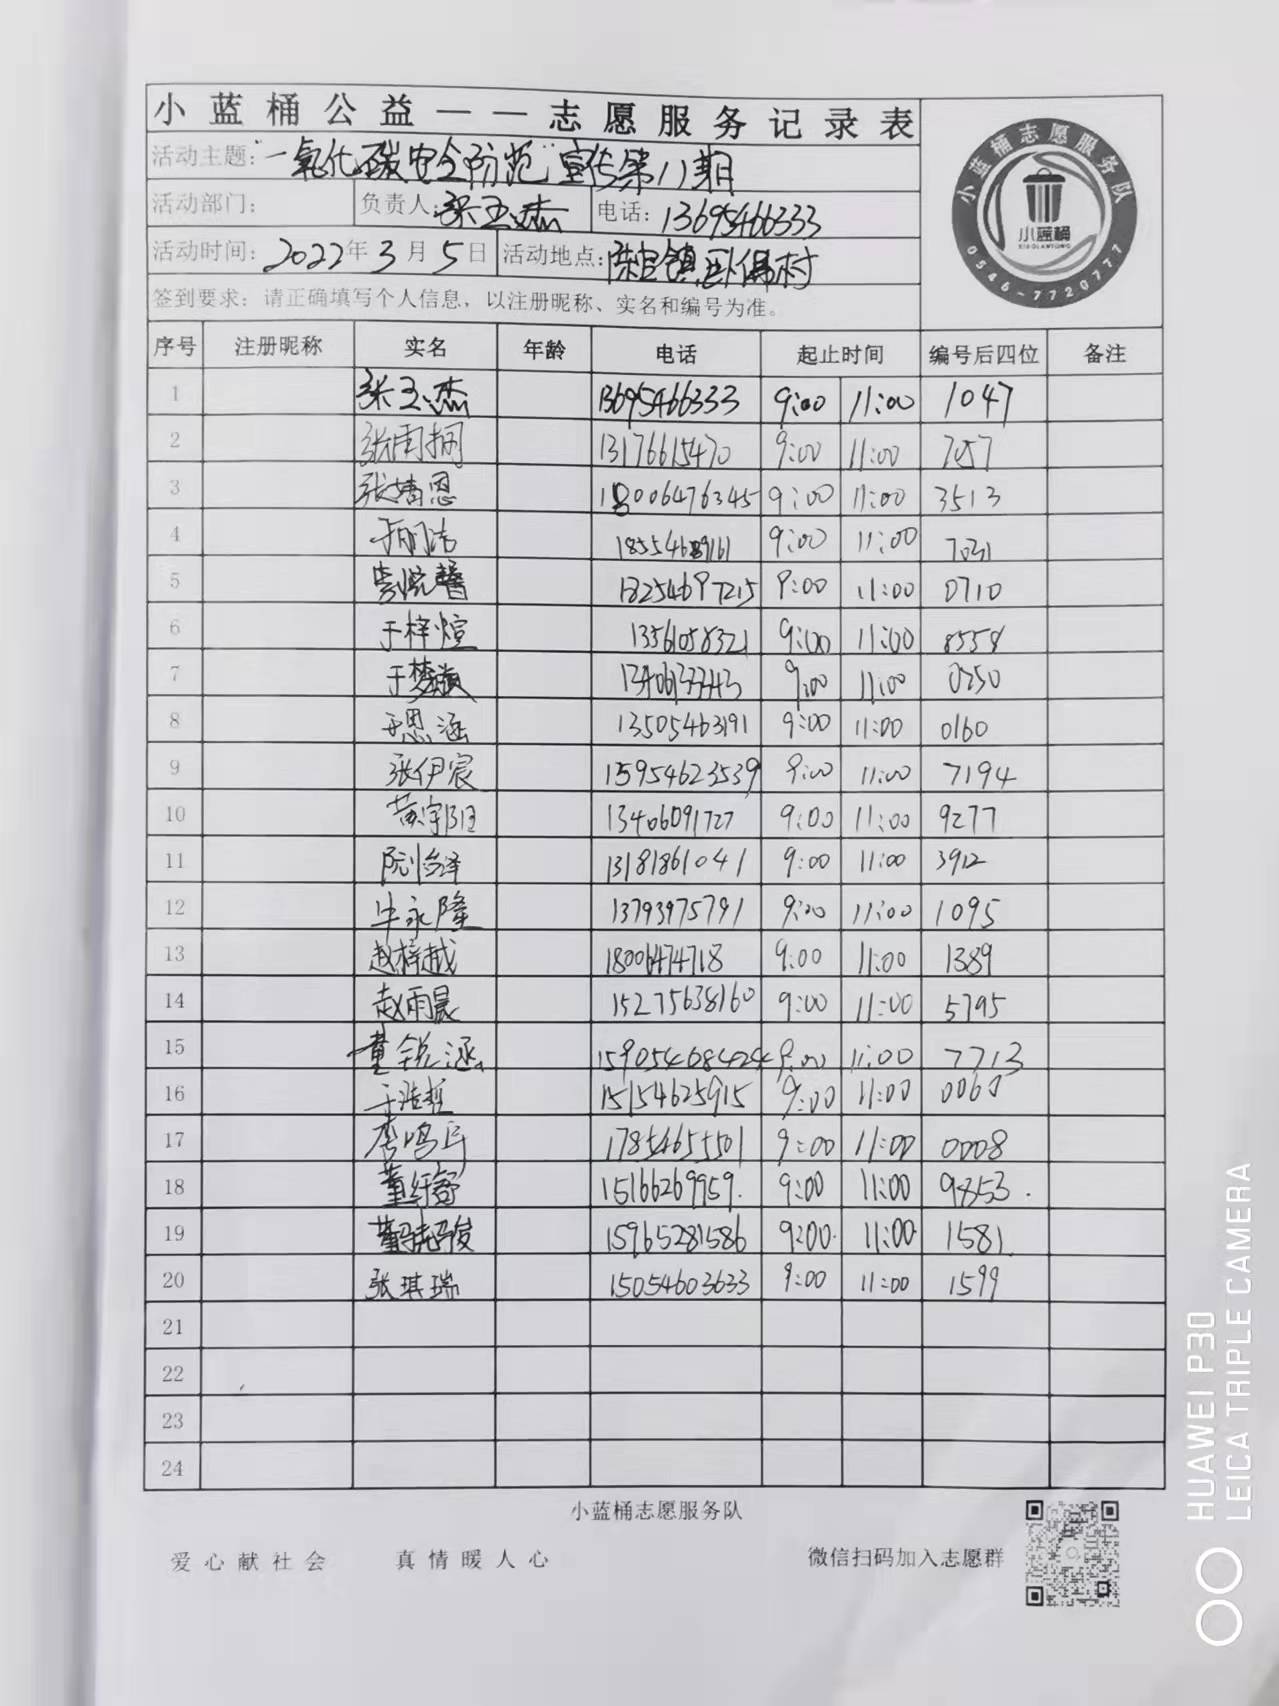 小蓝桶公益——志愿服务记录表
活动主题："一氧化碳安全防范"宣传第11期
活动部门： 负责人：张玉杰 电话：13695466333
活动时间：2022年3月5日 活动地点：陈官镇卧佛村
签到要求：请正确填写个人信息，以注册昵称、实名和编号为准。
小蓝桶志愿服务队
小蓝桶
XIAOLANTONG
0546-7720777
序号 注册昵称 实名 年龄 电话 起止时间 编号后四位 备注
1 张玉杰 13695466333 9:00 11:00 1047
2 13176615470 9:00 11:00 7057
3 张婧恩 18006476345 9:00 11:00 3513
4 9:00 11:00
5 李悦馨 18254697215 9:00 11:00 0710
6 于梓煊 9:00 11:00 8558
7 于梦颖 9:00 11:00
8 于恩涵 13505463191 9:00 11:00 0160
9 张伊宸 15954623539 9:00 11:00 7194
10 黄宇阳 13406091727 9:00 11:00 9277
11 13181861041 9:00 11:00 3912
12 牛永隆 13793975791 9:00 11:00 1095
13 赵梓越 18006474718 9:00 11:00 1389
14 赵雨晨 15275638160 9:00 11:00 5795
15 董锐涵 9:00 11:00 7713
16 于浩哲 15154625915 9:00 11:00 0060
17 李鸣 17854655501 9:00 11:00 0008
18 15166269959. 9:00 11:00 9853.
19 15965281586 9:00 11:00 1581
20 张琪瑞 15054603633 9:00 11:00 1599
21
22
23
24
小蓝桶志愿服务队
爱心献社会 真情暖人心 微信扫码加入志愿群
HUAWEI P30
LEICA TRIPLE CAMERA